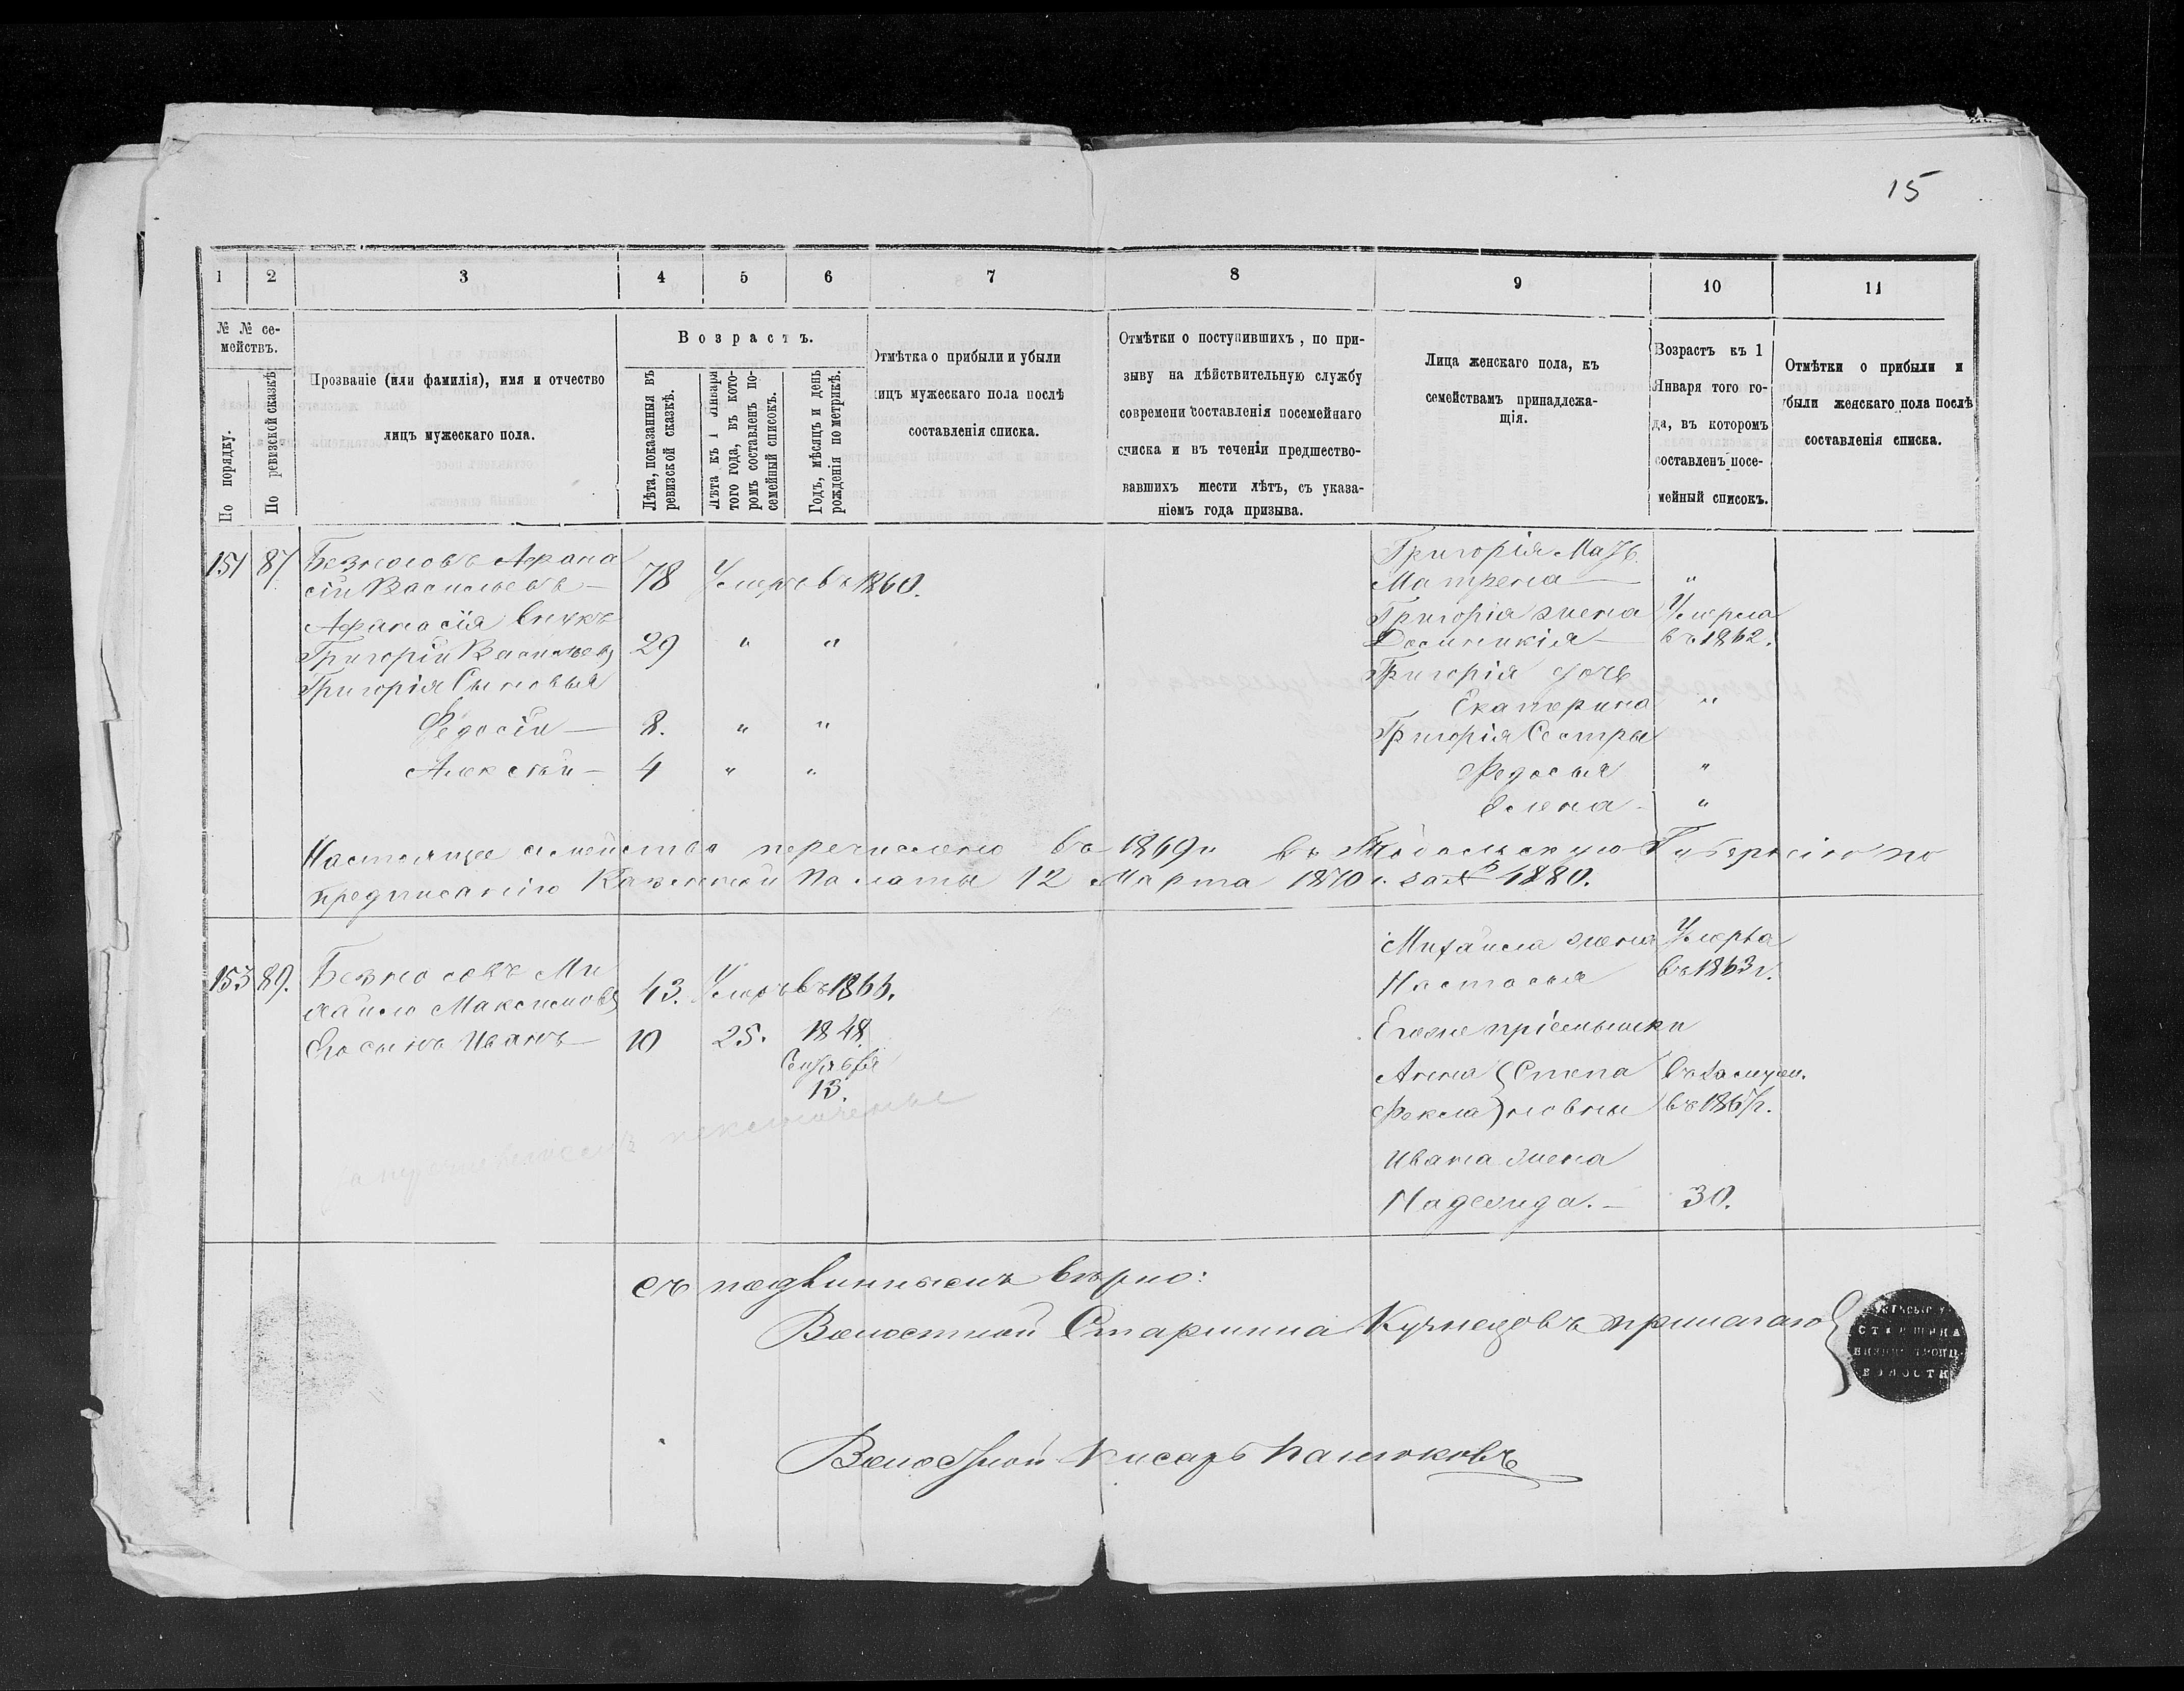 15
1 2 3 4 5 6 7 8 9 10 11
№ № се-
мействъ.
По порядку.
По ревизской сказкѣ
Прозваніе (или фамилія), имя и отчество
лицъ мужескаго пола.
Возрастъ.
Лѣта, показанныя въ
ревизской сказкѣ.
Лѣта къ 1 Января
того года, въ кото-
ромъ составленъ по-
семейный списокъ.
Годъ, мѣсяцъ и день
рожденія по метрикѣ.
Отмѣтка о прибыли и убыли
лицъ мужескаго пола послѣ
составленія списка.
Отмѣтки о поступившихъ, по при-
зыву на дѣйствительную службу
современи составленія посемейнаго
списка и въ теченіи предшество-
вавшихъ шести лѣтъ, съ указа-
ніемъ года призыва.
Лица женскаго пола, къ
семействамъ принадлежа-
щія.
Возрастъ къ 1
Января того го-
да, въ которомъ
составленъ посе-
мейный списокъ.
Отмѣтки о прибыли и
убыли женскаго пола послѣ
составленія списка.
151 87. Безносовъ Афана
сій Васильевъ — 78 Умеръ въ 1860.
Афанасія внукъ
Григорій Васильевъ 29 " "
Григорія Сыновья
Федосій — 8. " "
Алексѣй — 4 " "
Григорія Мать
Матрена — "
Григорія жена Умерла
Домникія — въ 1862.
Григорія дочь
Екатерина "
Григорія Сестры
Федосья "
Елена - "
Настоящее семейство перечислено въ 1869 г. въ Тобольскую Губернію по
предписанію Казенной Палаты 12 Марта 1870 г. за № 1880.
153 89. Безносовъ Ми
хайло Максимовъ 43. Умеръ въ 1866.
Его сынъ Иванъ — 10 25. 1848
Сентября
13.
Михайла жена Умерла
Настасья въ 1863 г.
Его же пріемыши
Анна (Степа въ замуж.
Фекла) новны въ 1867 г.
Ивана жена
Надежда. — 30.
съ подлиннымъ вѣрно:
Волостной Старшина Кузнецовъ прилагаю
СТАРШИНА
ВОЛОСТИ
Волостной Писарь